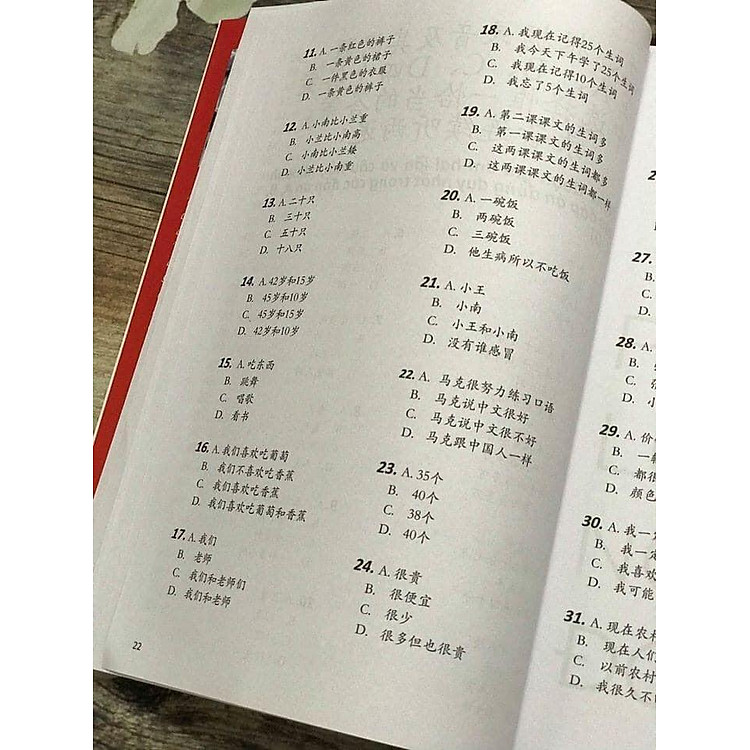 11. A. 一条红色的裤子
B. 一条黄色的裙子
C. 一件黑色的衣服
D. 一条黄色的裤子
12. A. 小南比小兰重
B. 小兰比小南高
C. 小南比小兰矮
D. 小兰比小南重
13. A. 二十只
B. 三十只
C. 五十只
D. 十八只
14. A. 42岁和15岁
B. 45岁和10岁
C. 45岁和15岁
D. 42岁和10岁
15. A. 吃东西
B. 跳舞
C. 唱歌
D. 看书
16. A. 我们喜欢吃葡萄
B. 我们不喜欢吃香蕉
C. 我们喜欢吃香蕉
D. 我们喜欢吃葡萄和香蕉
17. A. 我们
B. 老师
C. 我们和老师们
D. 我们和老师
22
18. A. 我现在记得25个生词
B. 我今天下午学了25个生词
C. 我现在记得10个生词
D. 我忘了5个生词
19. A. 第二课课文的生词多
B. 第一课课文的生词多
C. 这两课课文的生词都多
D. 这两课课文的生词都一样
20. A. 一碗饭
B. 两碗饭
C. 三碗饭
D. 他生病所以不吃饭
21. A. 小王
B. 小南
C. 小王和小南
D. 没有谁感冒
22. A. 马克很努力练习口语
B. 马克说中文很好
C. 马克说中文很不好
D. 马克跟中国人一样
23. A. 35个
B. 40个
C. 38个
D. 40个
24. A. 很贵
B. 很便宜
C. 很少
D. 很多但也很贵
27.
B.
C.
D.
28. A.
B.
C.
D. 小
29. A. 价
B. 一
C. 都很
D. 颜色
30. A. 我一
B. 我一
C. 我喜
D. 我可能
31. A. 现在农村
B. 现在人们
C. 以前农村
D. 我很久不